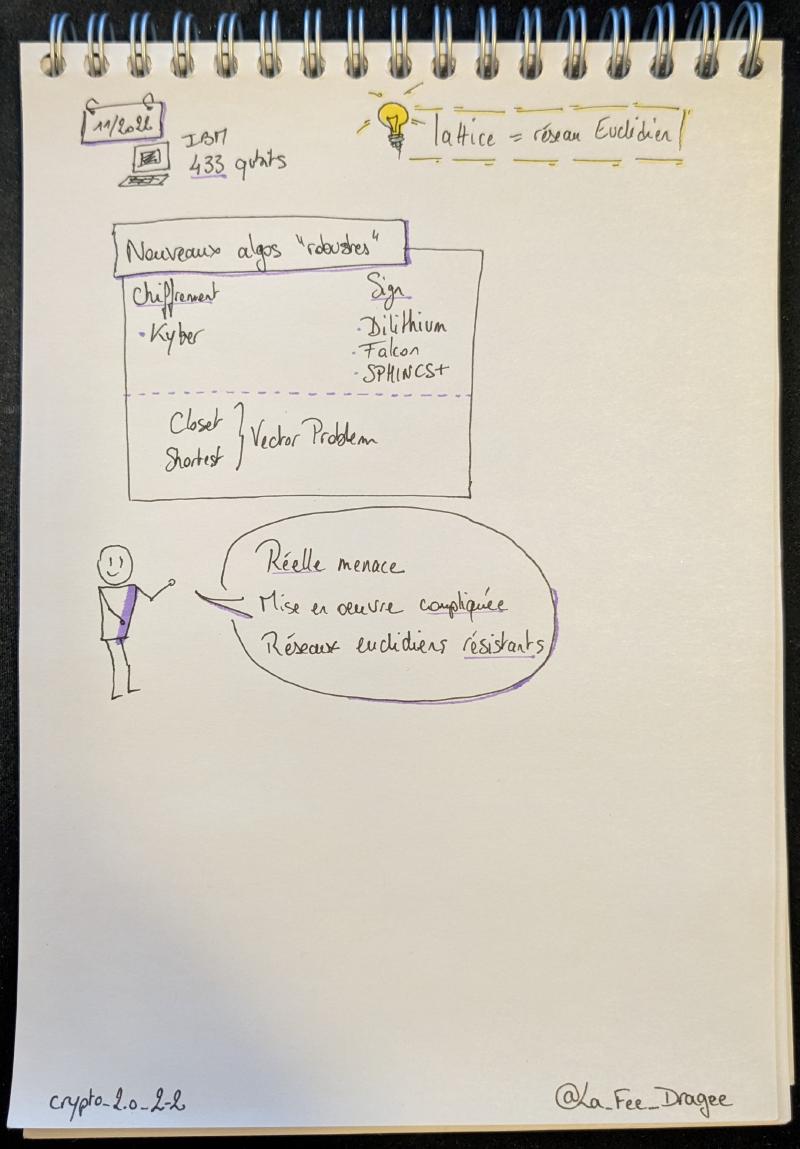 11/2022
IBM
433 qubits
lattice = réseau Euclidien
Nouveaux algos "robustes"
Chiffrement
• Kyber
Sign
• Dilithium
• Falcon
• SPHINCS+
Closet
Shortest
} Vector Problem
Réelle menace
Mise en oeuvre compliquée
Réseaux euclidiens résistants
crypto_2.0_2-2
@La_Fee_Dragee